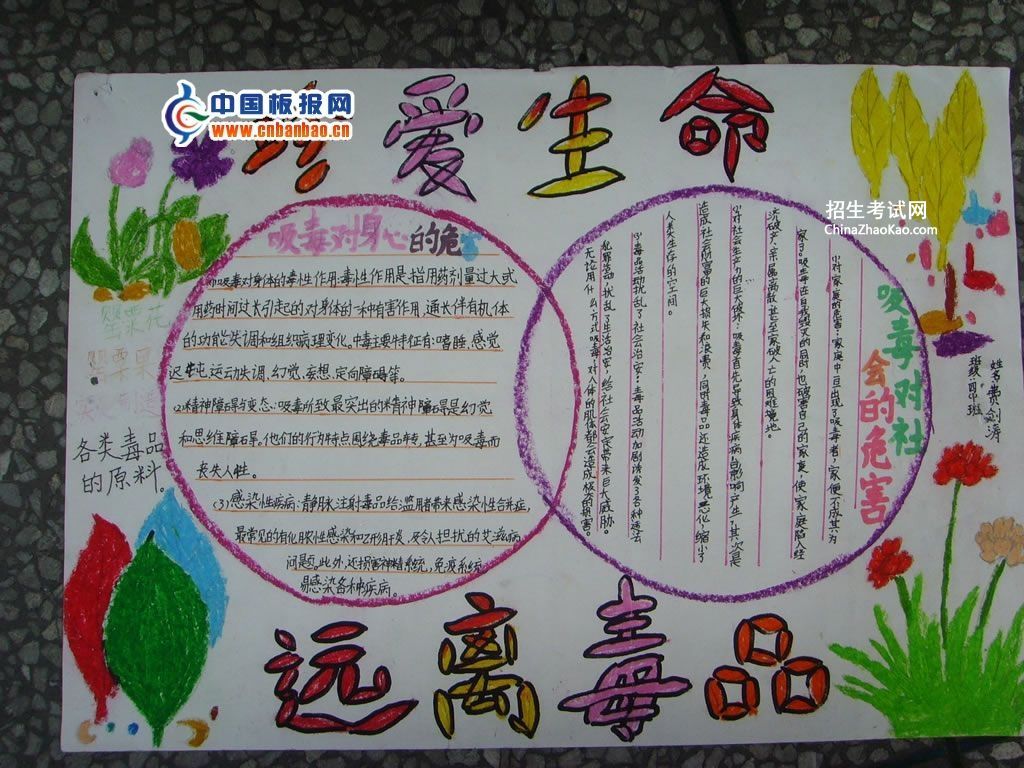 中国板报网
www.cnbanbao.cn
珍爱生命
招生考试网
ChinaZhaoKao.com
吸毒对身心的危
(1)吸毒对身体的毒性作用:毒性作用是指用药剂量过大或
用药时间过长引起的对身体的一种有害作用,通常伴有机体
的功能失调和组织病理变化。中毒主要特征有:嗜睡、感觉
迟钝、运动失调、幻觉、妄想、定向障碍等。
(2)精神障碍与变态:吸毒所致最突出的精神障碍是幻觉
和思维障碍。他们的行为特点围绕毒品转,甚至为吸毒而
丧失人性。
(3)感染性疾病:静脉注射毒品给滥用者带来感染性合并症,
最常见的有化脓性感染和乙形肝炎,及令人担扰的艾滋病
问题。此外,还损害神精系统,免疫系统,
易感染各种疾病。
吸毒对社
会的危害
(1)对家庭的危害:家庭中一旦出现了吸毒者,家便不成其为
家了。吸毒者在自我毁灭的同时,也破害自己的家庭,使家庭陷入经
济破产、亲属离散、甚至家破人亡的困难境地。
(2)对社会生产力的巨大破坏:吸毒首先导致身体疾病,影响生产,其次是
造成社会财富的巨大损失和浪费,同时毒品还造成环境恶化,缩小了
人类生存的空间。
(3)毒品活动扰乱了社会治安:毒品活动加剧诱发了各种违法
犯罪活动,扰乱了社会治安,给社会安定带来巨大威胁。
无论用什么方式吸毒,对人体的肌体都会造成极大的损害。
姓名:费剑涛
班级:四甲班
罂粟花
罂粟果
各类毒品
的原料。
远离毒品